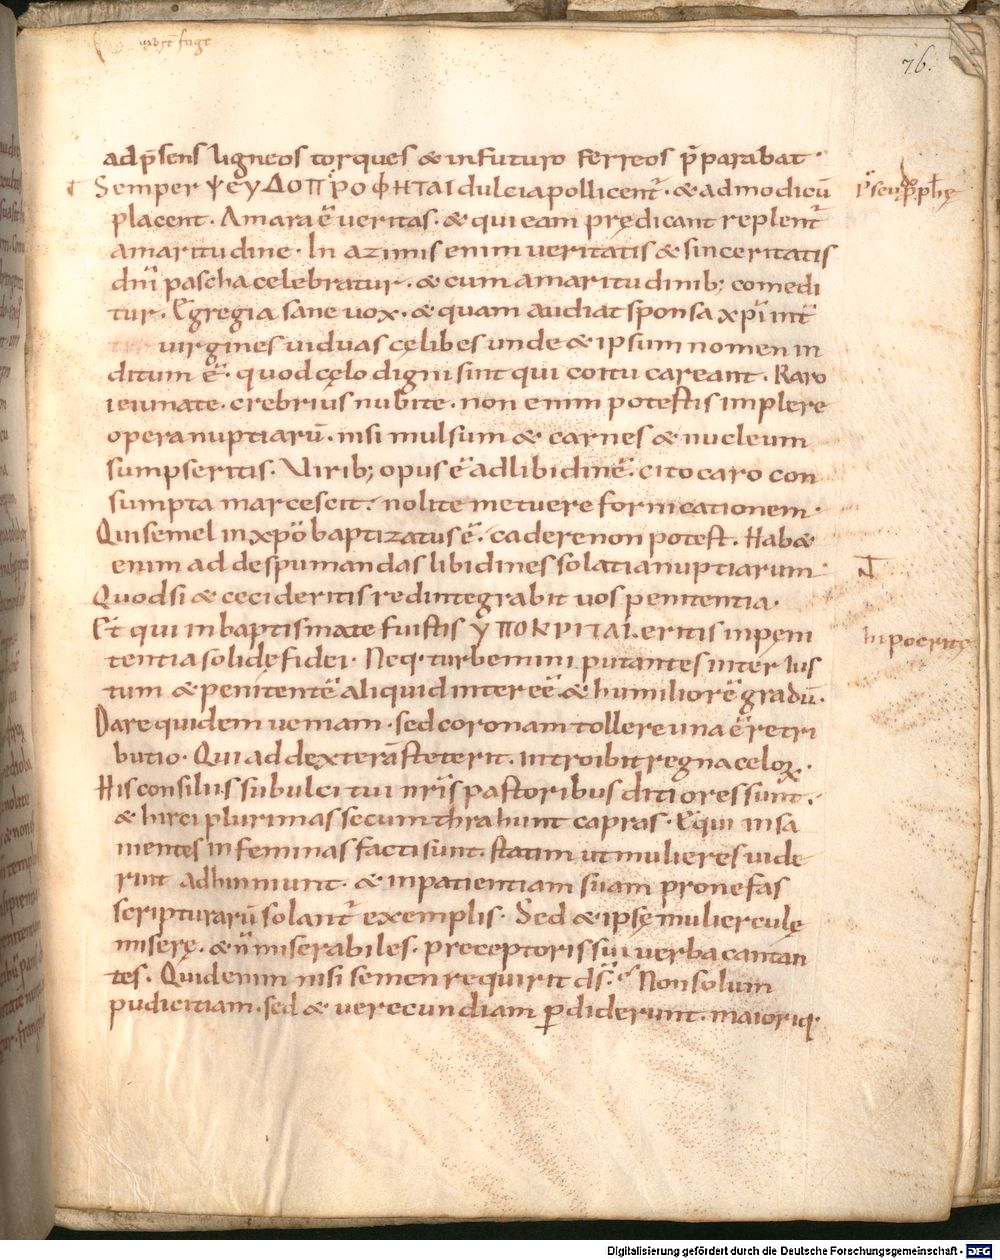 76.
ad p̄sens ligneos torques & in futuro ferreos p̄parabat·
Semper ΨΕΥΔΟΠΡΟΦΗΤΑΙ dulcia pollicent᷑· & ad modicū
pseudopphę
placent. Amara ē ueritas· & qui eam prędicant replent᷑
amaritudine· In azimis enim ueritatis & sinceritatis
dn̄i pascha celebratur· & cum amaritudinib; comedi
tur· Egregia sane uox· & quam audiat sponsa xp̄i int̄
uirgines uiduas cęlibes unde & ipsum nomen in
ditum ē· quod cęlo digni sint qui coitu careant· Raro
ieiunate· crebrius nubite· non enim potestis implere
opera nuptiarū· nisi mulsum & carnes & nucleum
sumpseritis· Virib; opus ē ad libidinē· cito caro con
sumpta marcescit· nolite metuere fornicationem·
Qui semel in xp̄o baptizatus ē· cadere non potest· Hab&
enim ad despumandas libidines solatia nuptiarum·
Quod si & cecideritis redintegrabit uos penitentia·
Et qui in baptismate fuistis ΥΠΟΚΡΙΤΑΙ· eritis in pęni
hipocritę
tentia solidę fidei· Neq· turbemini putantes inter ius
tum & penitentē aliquid inter eē· & humiliorē gradū·
Dare quidem ueniam· sed coronam tollere una ē retri
butio· Qui ad dexterā steterit· introibit regna celoꝝ·
His consiliis subulci tui nr̄is pastoribus ditiores sunt·
& hirci plurimas secum thrahunt capras· Equi insa
nientes in feminas facti sunt· statim ut mulieres uide
rint adhinniunt· & inpatientiam suam pro nefas
scripturarū solant᷑ exemplis· Sed & ipsę mulierculę
miserę· & n̄ miserabiles· preceptoris sui uerba cantan
tes· Quid enim nisi semen requirit ds̄· Non solum
pudicitiam· sed & uerecundiam ꝑdiderunt· maioriq·
Digitalisierung gefördert durch die Deutsche Forschungsgemeinschaft - DFG